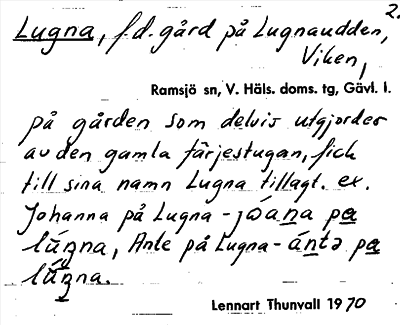 2.
Lugna, f.d. gård på Lugnaudden,
Viken,
Ramsjö sn, V. Häls. doms. tg, Gävl. l.
på gården som delvis utgjordes
av den gamla färjestugan, fick
till sina namn Lugna tillagt. ex.
Johanna på Lugna - jɷ̀ana pa
lúŋna, Ante på Lugna - ántə pa
lúŋna.
Lennart Thunvall 1970